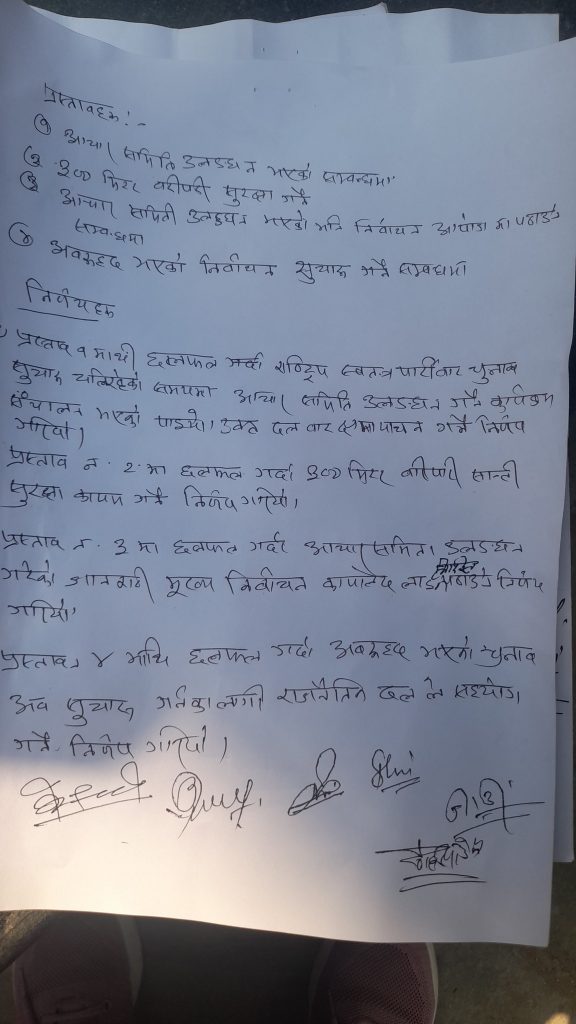 प्रस्तावहरू:-
१ आचार समिति उलङघन भएको सम्बन्धमा
२ ३०० मिटर वरीपरी सुरक्षा गर्ने
३ आचार समिती उलङघन भएको भनि निर्वाचन आयोग मा पठाउने
सम्बन्धमा
४ अवरूद्द भएको निर्वाचन सुचारू गर्ने सम्बन्धमा
निर्णयहरू
प्रस्ताव १ माथी छलफल गर्दा राष्ट्रिय स्वतन्त्र पार्टीबाट चुनाव
सुचारू चलिरहेको समयमा आचार समिति उलङघन गर्ने कार्यक्रम
संचालन भएको पाइयो। उक्त दल बाट क्षमायाचना गर्ने निर्णय
गरियो।
प्रस्ताव न. २. मा छलफल गर्दा ३०० मिटर वरीपरी सान्ती
सुरक्षा कायम गर्ने निर्णय गरियो।
प्रस्ताव न. ३ मा छलफल गर्दा आचार समिती उलङघन
गरेको जानकारी मूख्य निर्वाचन कार्यालय लाई पठाउने निर्णय
गरियो
प्रस्ताव ४ माथि छलफल गर्दा अवरूद्द भएको चुनाव
अव सुचारू गर्नका लागी राजनैतिक दल ले सहयोग
गर्ने निर्णय गरियो।